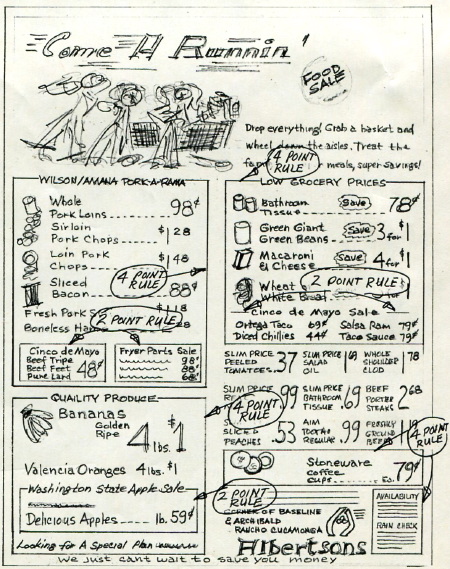 Come A Runnin'
FOOD
SALE
Drop everything! Grab a basket and
wheel down the aisles. Treat the
meals, super savings!
4 POINT
RULE
WILSON/AMANA PORK-A-RAMA
Whole
Pork Loins 98¢
Sirloin
Pork Chops $1 28
Loin Pork
Chops $1 48
Sliced
Bacon 88¢
4 POINT
RULE
Fresh Pork S $1 18
Boneless Ha 88
2 POINT RULE
Cinco de Mayo
Beef Tripe
Beef Feet
Pure Lard
48¢
Fryer Parts Sale
98¢
88¢
68¢
QUAILITY PRODUCE
Bananas
Golden
Ripe
4 lbs. $1
Valencia Oranges 4 lbs. $1
Washington State Apple Sale
Delicious Apples lb. 59¢
Looking For A Special Plan
LOW GROCERY PRICES
Bathroom
Tissue
Save
78¢
Green Giant
Green Beans
Save
3 for $1
Macaroni
& Cheese
Save
4 for $1
Wheat
White Bread
2 POINT RULE
Cinco de Mayo Sale
Ortega Taco 69¢ Salsa Ram 79¢
Diced Chillies 44¢ Taco Sauce 79¢
SLIM PRICE
PEELED
TOMATOES
.37
SLIM PRICE
SALAD
OIL
WHOLE
SHOULDER
CLOD
.78
SLIM PRICE
.99
SLIM PRICE
BATHROOM
TISSUE
.69
BEEF
PORTER
STEAKS
2 68
4 POINT
RULE
SLICED
PEACHES
.53
AIM
TOOTHP
REGULAR
.99
FRESHLY
GROUND
BEEF
1 19
4 POINT
RULE
Stoneware
coffee
cups ea.
79¢
2 POINT
RULE
CORNER OF BASELINE
& ARCHIBALD
RANCHO CUCAMONGA
Albertsons
AVAILABILITY
RAIN CHECK
We just cant wait to save you money